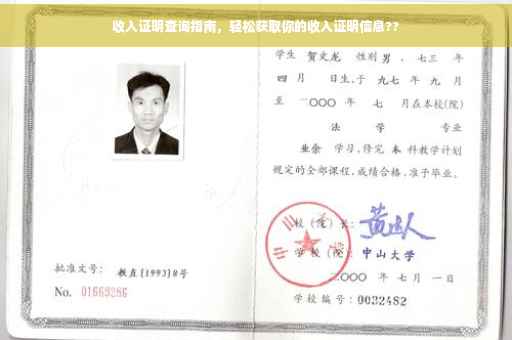 收入证明查询指南，轻松获取你的收入证明信息??
学生 贺文龙 性别 男 、七三 年
四 月 日生,于 九七 年 九 月
至 二〇〇〇 年 七 月在本校(院)
法 学 专业
业余 学习,修完 本 科教学计划
规定的全部课程,成绩合格,准予毕业。
校(院)长:
学校(院): 中山大学
二〇〇〇 年 七 月 一 日
批准文号: 教直[1993]8号
No. 01669286
学校编号: 0032482